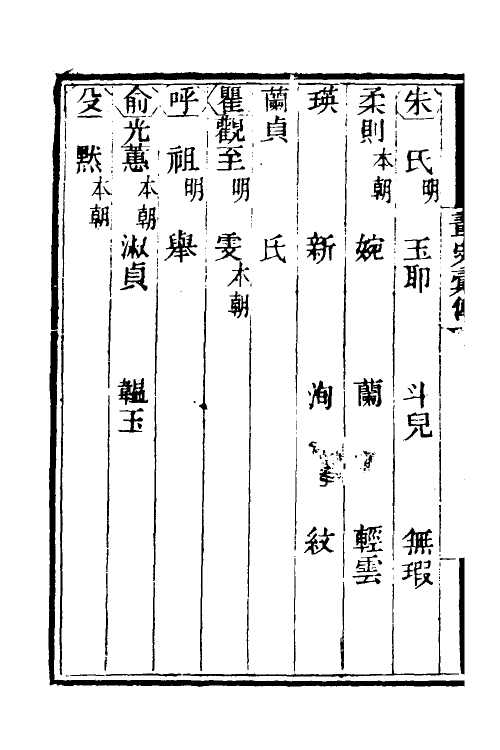 朱氏明 玉耶 斗兒 無瑕
柔則本朝 婉 蘭 輕雲
瑛 新 洵 紋
蘭貞 氏
瞿觀至明 雯本朝
呼祖明 舉
俞光蕙本朝 淑貞 韞玉
殳默本朝
畫史彙傳